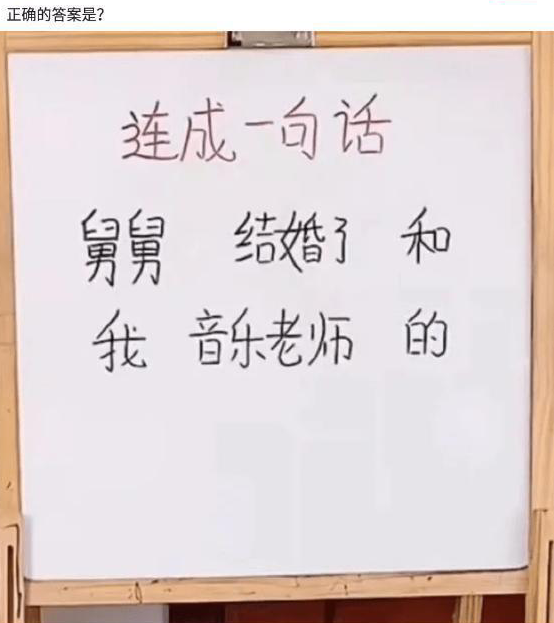 正确的答案是?
连成一句话
舅舅 结婚了 和
我 音乐老师 的